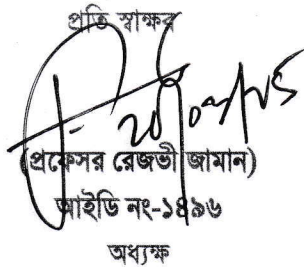 প্রতি স্বাক্ষর
(প্রফেসর রেজভী জামান)
আইডি নং-১৪৯৬
অধ্যক্ষ